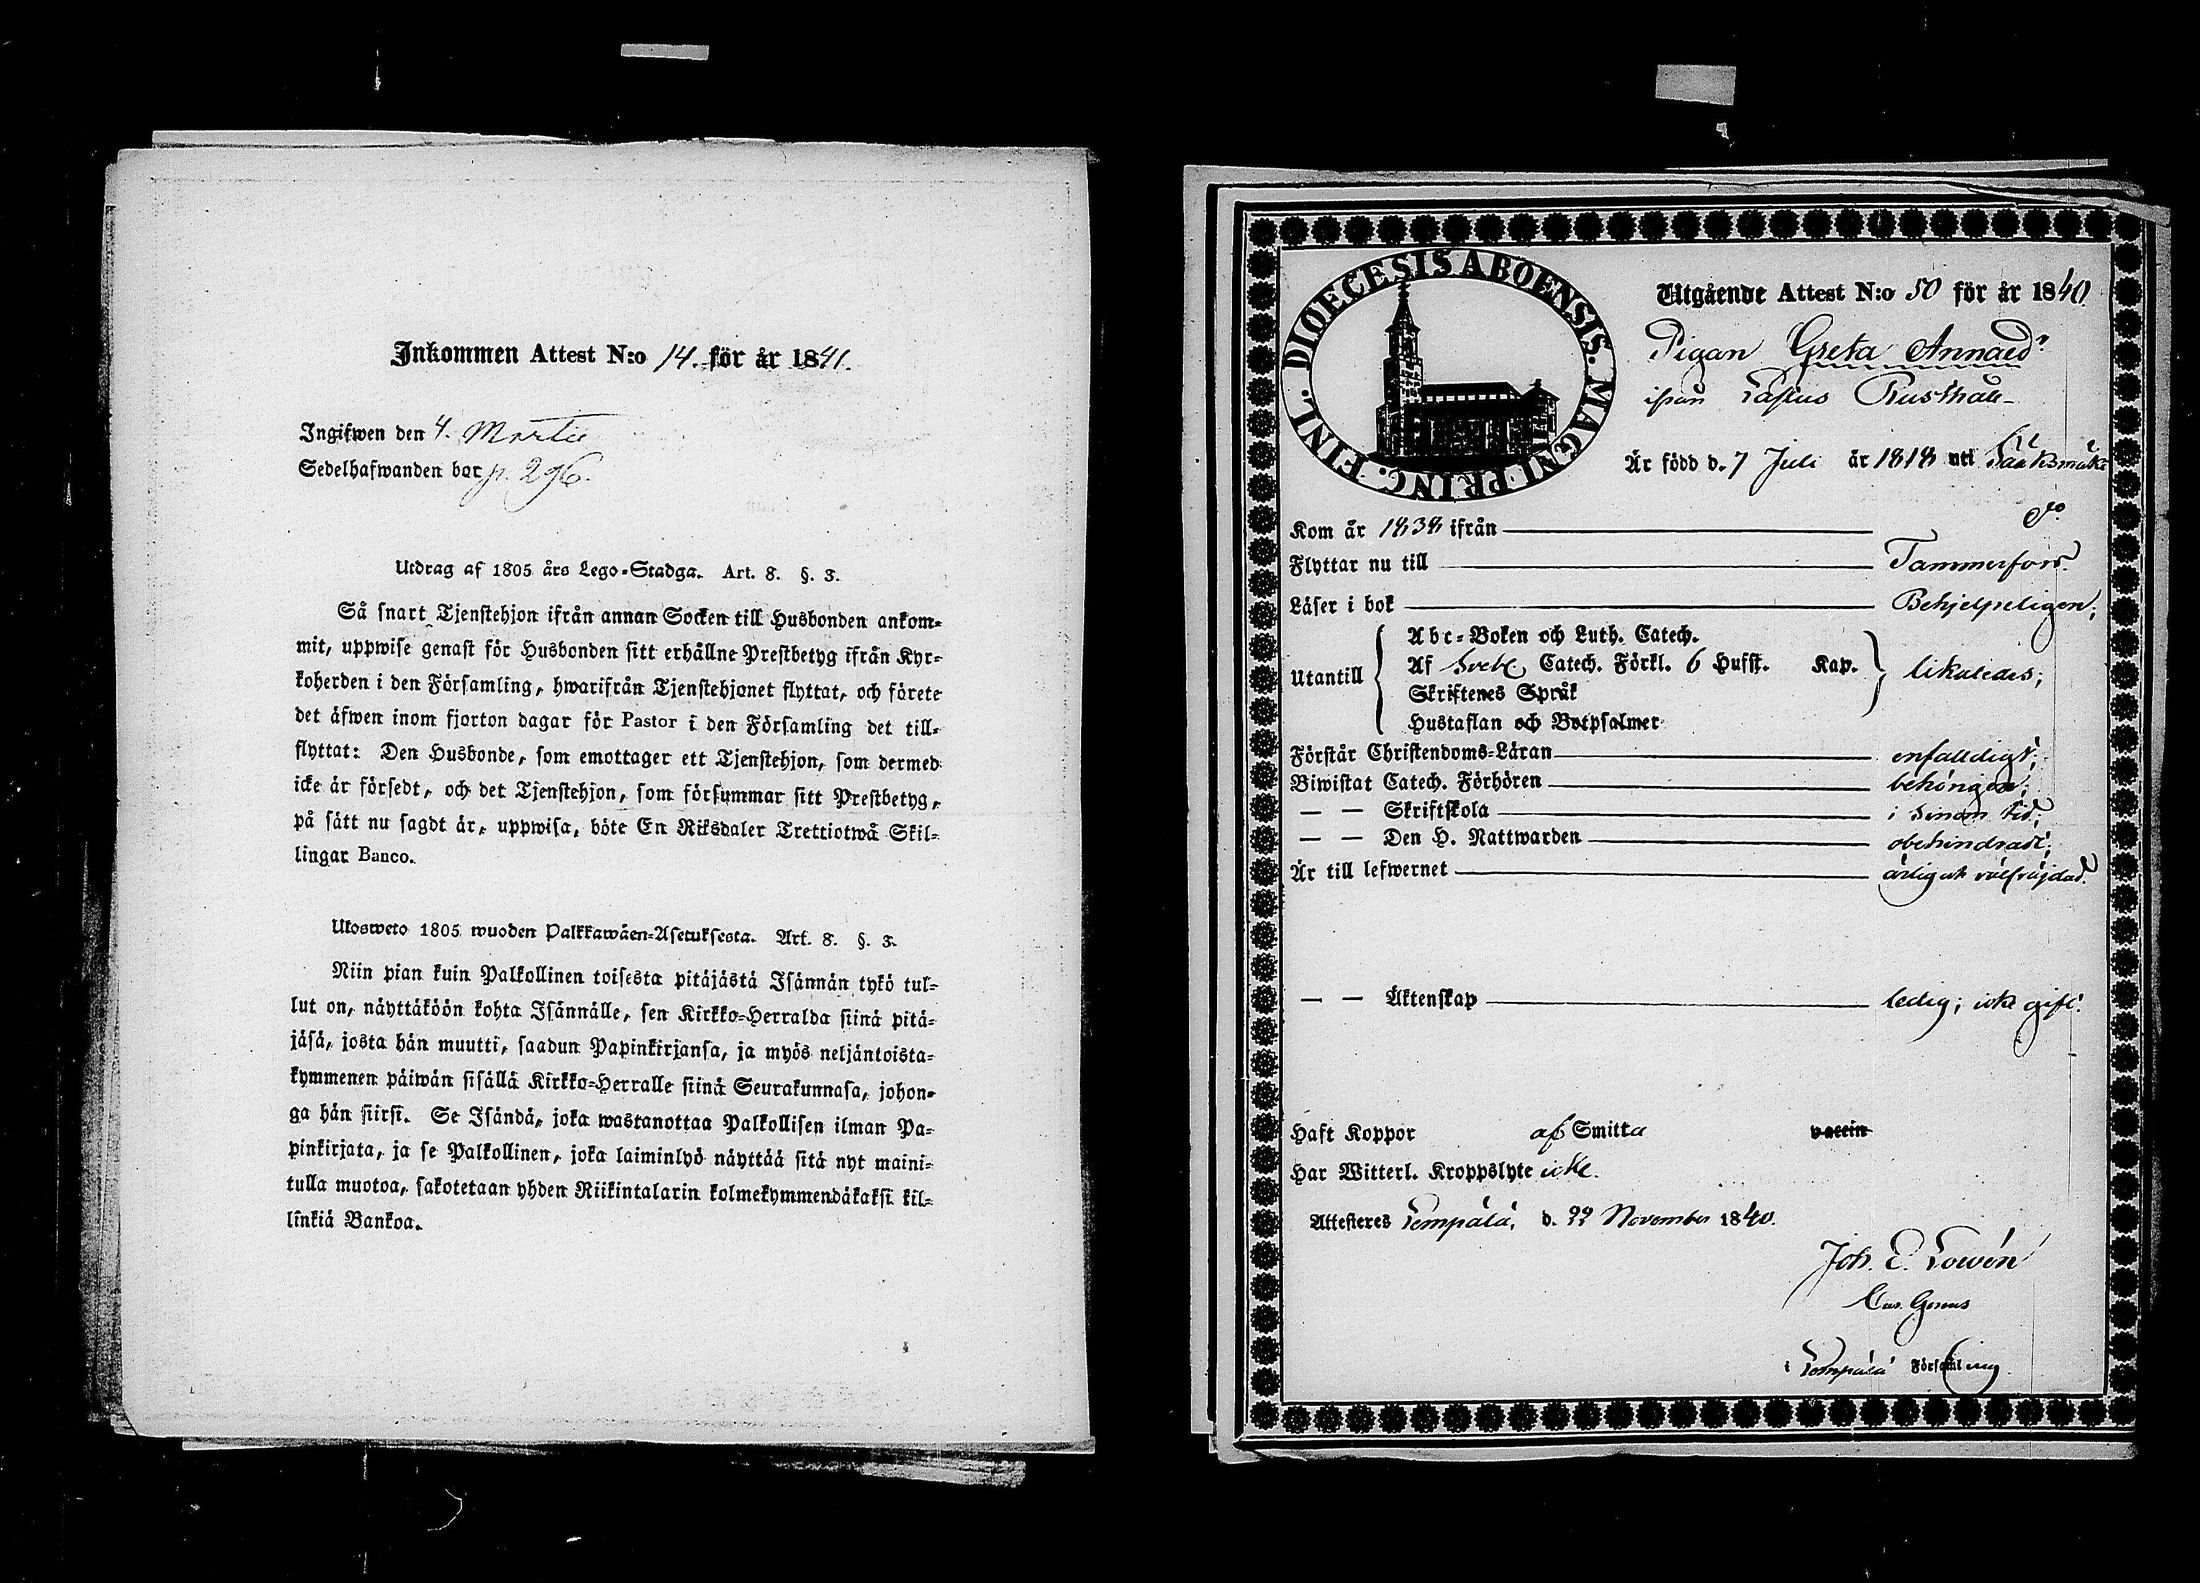 Inkommen Attest N:o 14. för år 1841.
Ingifwen den 4. Martii
Sedelhafwanden bor p. 296.
Utdrag af 1805 års Lego-Stadga. Art. 8. §. 3.
Så snart Tjenstehjon ifrån annan Socken till Husbonden ankom-
mit, uppwise genast för Husbonden sitt erhållne Prestbetyg ifrån Kyr-
koherden i den Församling, hwarifrån Tjenstehjonet flyttat, och förete
det äfwen inom fjorton dagar för Pastor i den Församling det till-
flyttat: Den Husbonde, som emottager ett Tjenstehjon, som dermed
icke är försedt, och det Tjenstehjon, som försummar sitt Prestbetyg,
på sätt nu sagdt är, uppwisa, böte En Riksdaler Trettiotwå Skil-
lingar Banco.
Ulosweto 1805 wuoden Palkkawäen-Asetuksesta. Art. 8. §. 3.
Niin pian kuin Palkollinen toisesta pitäjästä Isännän tykö tul-
lut on, näyttäköön kohta Isännälle, sen Kirkko-Herralda siinä pitä-
jäsä, josta hän muutti, saadun Papinkirjansa, ja myös neljäntoista-
kymmenen päiwän sisällä Kirkko-Herralle siinä Seurakunnasa, johon-
ga hän siirsi. Se Isändä, joka wastanottaa Palkollisen ilman Pa-
pinkirjata, ja se Palkollinen, joka laiminlyö näyttää sitä nyt maini-
tulla muotoa, sakotetaan yhden Riikintalarin kolmekymmendäkaksi kil-
linkiä Bankoa.
DIOECESIS ABOENSIS. MAGNI PRINC. FINL.
Utgående Attest N:o 50 för år 1840
Pigan Greta Annaed:r
ifrån Rusthåll
Är född d. 7 Juli år 1818 uti Sääksmäki
Kom år 1838 ifrån do
Flyttar nu till Tammerfors.
Läser i bok Behjelpeligen;
Abc-Boken och Luth. Catech.
Utantill Af Sveb. Catech. Förkl. 6 Hufst. Kap. likaledes;
Skriftenes Språk
Hustaflan och Botpsalmer
Förstår Christendoms-Läran enfalldigt;
Biwistat Catech. Förhören behörigen;
— — Skriftskola i sinom tid;
— — Den H. Nattwarden obehindrad;
Är till lefwernet ärlig och välfräjdad.
— — Äktenskap ledig; icke gift.
Haft Koppor af Smitta vaccin
Har Witterl. Kroppslyte icke.
Attesteres Lempälä, d. 22 November 1840.
Joh. E. Lowén
i Lempälä Församling